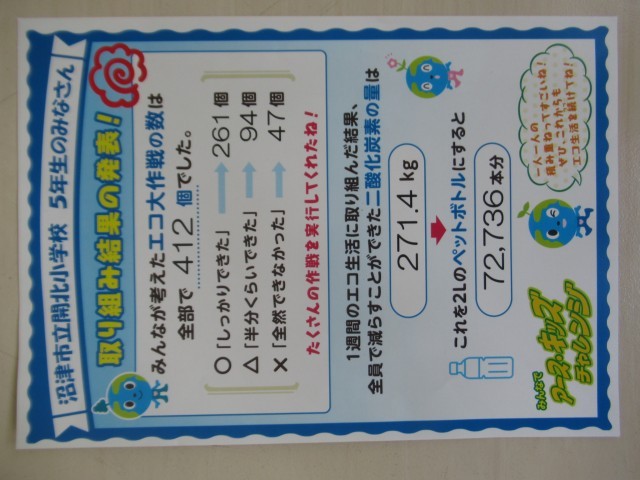 沼津市立開北小学校 5年生のみなさん
取り組み結果の発表!
みんなが考えたエコ大作戦の数は
全部で 412 個でした。
○「しっかりできた」→ 261 個
△「半分くらいできた」→ 94 個
×「全然できなかった」→ 47 個
たくさんの作戦を実行してくれたね!
1週間のエコ生活に取り組んだ結果、
全員で減らすことができた二酸化炭素の量は
271.4 kg
これを2Lのペットボトルにすると
72,736 本分
一人一人の
積み重ねてすごいね!
ぜひ、これからも
エコ生活を続けてね!
みんなで
アース・キッズ
チャレンジ